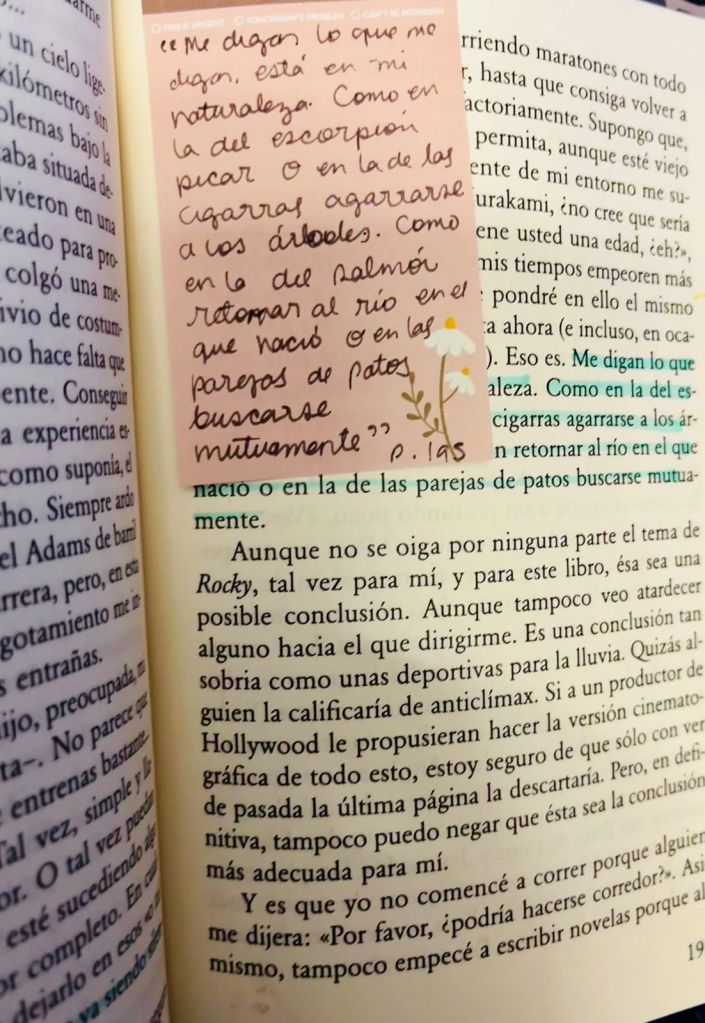 uarme
un cielo lige-
kilómetros sin
blemas bajo la
aba situada de-
lvieron en una
eado para pro-
colgó una me-
ivio de costum-
no hace falta que
ente. Conseguir
a experiencia es-
como suponía, el
ho. Siempre ardo
el Adams de barril
rrera, pero, en esta
gotamiento me in-
s entrañas.
ijo, preocupada, mi
ta–. No parece que
entrenas bastante.
Tal vez, simple y
or. O tal vez puedas
esté sucediendo algo
or completo. En cual
dejarlo en esos
ya siendo
THIS IS URGENT TOMORROW'S PROBLEM CAN'T BE BOTHERED
“Me digan lo que me
digan, está en mi
naturaleza. Como en
la del escorpión
picar o en la de las
cigarras agarrarse
a los árboles. Como
en la del salmón
retornar al río en el
que nació o en las
parejas de patos
buscarse
mutuamente” p. 195
rriendo maratones con todo
r, hasta que consiga volver a
actoriamente. Supongo que,
permita, aunque esté viejo
ente de mi entorno me su-
urakami, ¿no cree que sería
ene usted una edad, ¿eh?»,
mis tiempos empeoren más
pondré en ello el mismo
ta ahora (e incluso, en oca-
). Eso es. Me digan lo que
aleza. Como en la del es-
cigarras agarrarse a los ár-
n retornar al río en el que
nació o en la de las parejas de patos buscarse mutua-
mente.
Aunque no se oiga por ninguna parte el tema de
Rocky, tal vez para mí, y para este libro, ésa sea una
posible conclusión. Aunque tampoco veo atardecer
alguno hacia el que dirigirme. Es una conclusión tan
sobria como unas deportivas para la lluvia. Quizás al-
guien la calificaría de anticlímax. Si a un productor de
Hollywood le propusieran hacer la versión cinemato-
gráfica de todo esto, estoy seguro de que sólo con ver
de pasada la última página la descartaría. Pero, en defi-
nitiva, tampoco puedo negar que ésta sea la conclusión
más adecuada para mí.
Y es que yo no comencé a correr porque alguien
me dijera: «Por favor, ¿podría hacerse corredor?». Asi
mismo, tampoco empecé a escribir novelas porque al
19